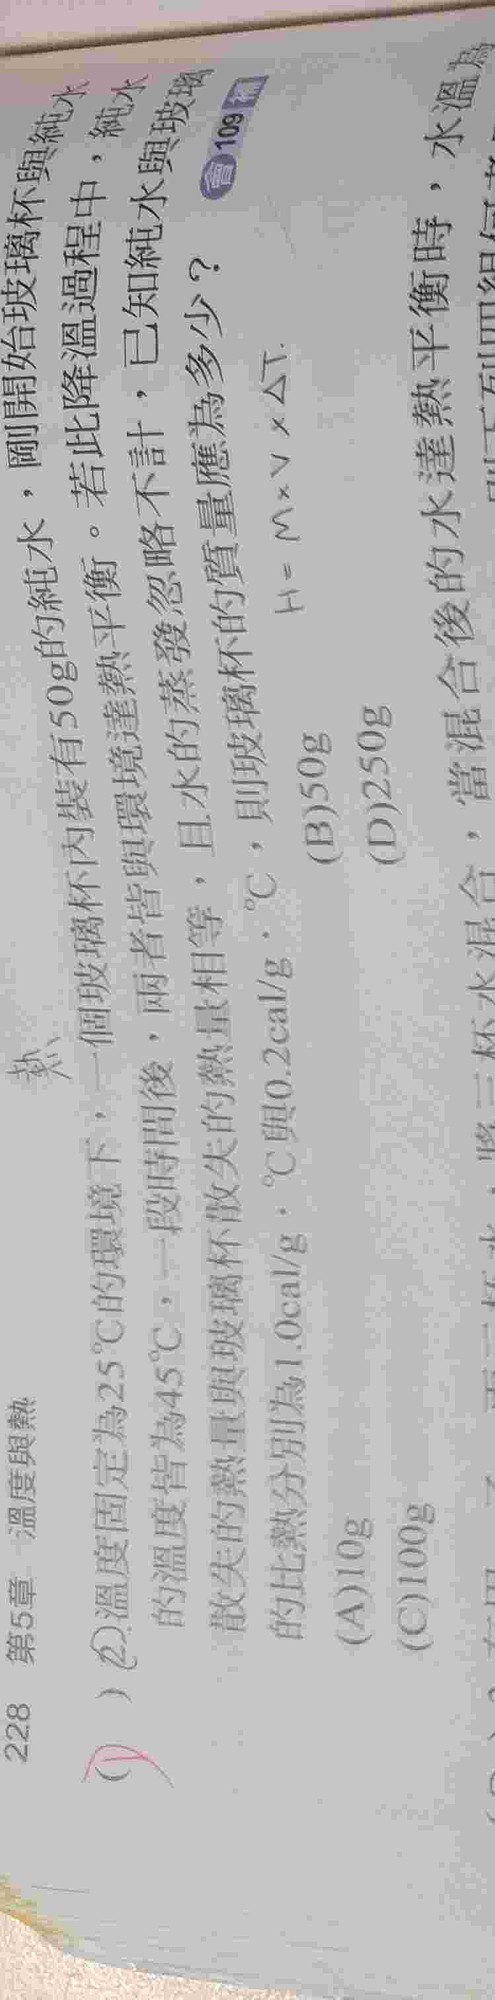 228 第5章 溫度與熱
熱
( ) 2.溫度固定為25℃的環境下，一個玻璃杯內裝有50g的純水，剛開始玻璃杯與純水
的溫度皆為45℃，一段時間後，兩者皆與環境達熱平衡。若此降溫過程中，純水
散失的熱量與玻璃杯散失的熱量相等，且水的蒸發忽略不計，已知純水與玻璃
的比熱分別為1.0cal/g．℃與0.2cal/g．℃，則玻璃杯的質量應為多少？ 會109補
H = M × V × ΔT.
(A)10g (B)50g
(C)100g (D)250g
三杯水混合，當混合後的水達熱平衡時，水溫為